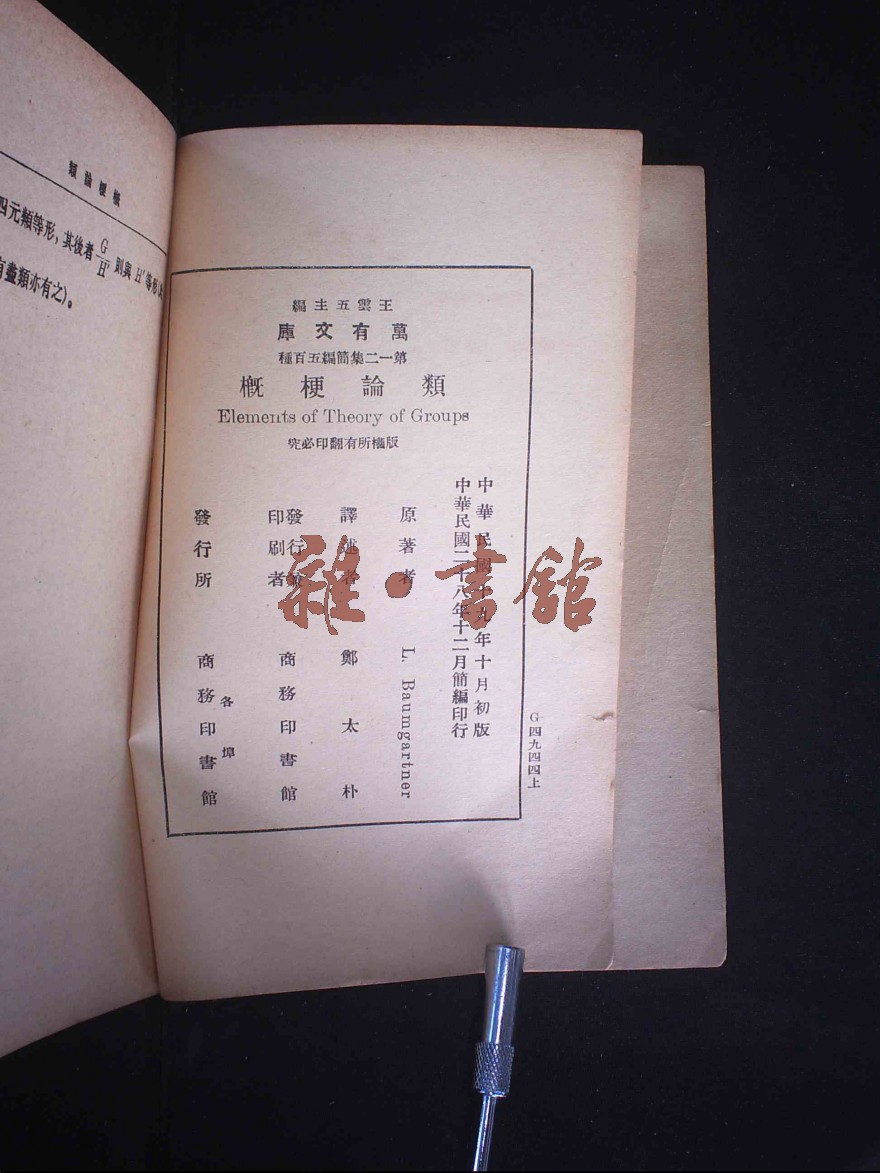 王雲五主編
萬有文庫
第一二集簡編五百種
類論梗槪
Elements of Theory of Groups
版權所有翻印必究
中華民國十九年十月初版
中華民國二十八年十二月簡編印行
原著者 L. Baumgartner
譯述者 鄭太朴
發行兼
印刷者 商務印書館
發行所 各埠 商務印書館
G四九四四上
類論梗槪
四元類等形，其後者 G/H 則與 H′ 等形
有盡類亦有之）。
雜·書館